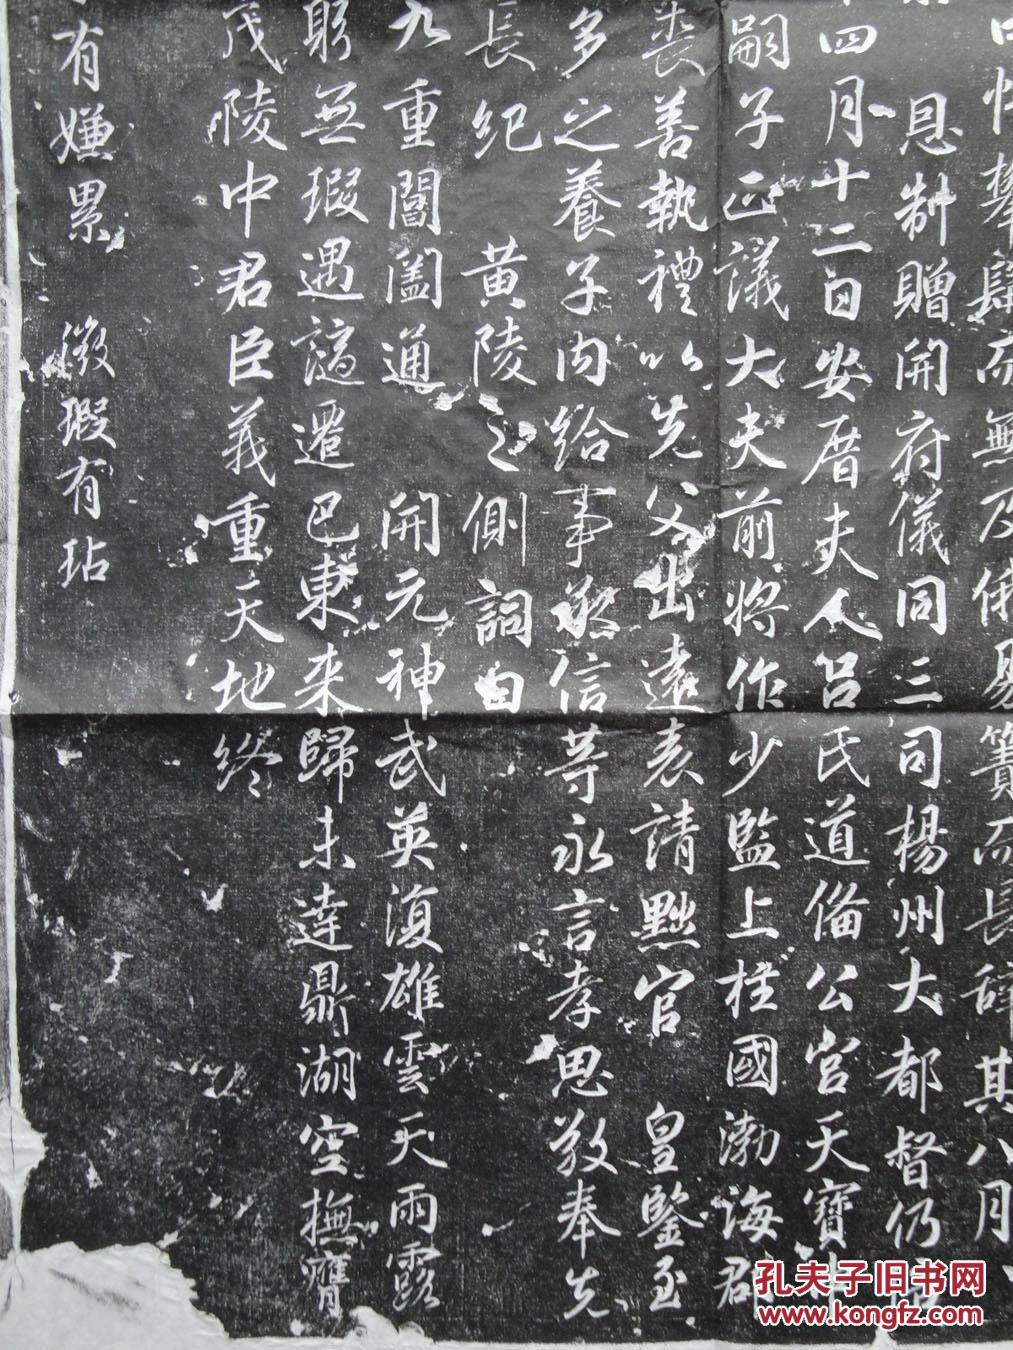 擧肆而無及俄易簀而長辞其八月
恩制贈開府儀同三司楊州大都督仍
四月十二日安厝夫人呂氏道俻公宮天寶
嗣子正議大夫前將作少監上柱國渤海郡
喪善執禮以先父出遠表請黜官 皇鑒至
多之養子內給事承信等永言孝思敬奉先
長紀 黃陵之側詞曰
九重閶闔通 開元神武英復雄雲天雨露
躬無瑕遇謫遷巴東来歸未達鼎湖空撫膺
茂陵中君臣義重天地终
有嫌累 微瑕有玷
孔夫子旧书网
www.kongfz.com